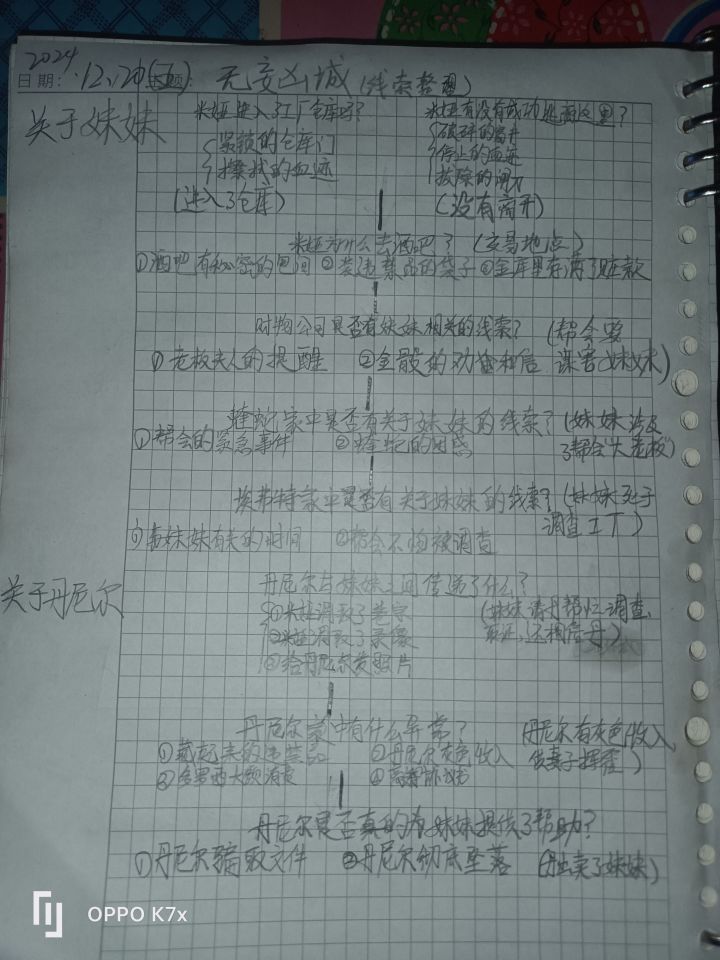 2024
日期: 12.20(五) 题: 无 凶城(线索整理)
关于妹妹
米娅进入了工厂仓库吗? 米娅有没有成功逃离这里?
紧锁的仓库门
擦拭的血迹
(进入了仓库)
破碎的
停止的血迹
拔除的
(没有离开)
米娅为什么去酒吧? (交易地点)
①酒吧有秘密的包间 ②装违禁品的袋子 ③金库里存满了赃款
财物公司是否有妹妹相关的线索? (帮会要谋害妹妹)
①老板夫人的提醒 ②金骰的 和信
蝰蛇家中是否有关于妹妹的线索? (妹妹涉及了帮会"大老板")
①帮会的紧急事件 ②蝰蛇的
埃弗特家中是否有关于妹妹的线索? (妹妹死于调查工厂)
①与妹妹有关的时间 ②帮会不怕被调查
关于丹尼尔
丹尼尔与妹妹之间传递了什么?
①米娅调取了卷宗
②米娅调取了录像
③给丹尼尔发照片
(妹妹请丹帮忙调查, 取证, )
丹尼尔家中有什么异常? (丹尼尔有灰色收入, 供妻子挥霍)
①藏起来的违禁品 ②丹尼尔灰色收入
③ 大额消费 ④
丹尼尔是否真的为妹妹提供了帮助?
①丹尼尔骗取文件 ②丹尼尔彻底坠落 (丹出卖了妹妹)
OPPO K7x